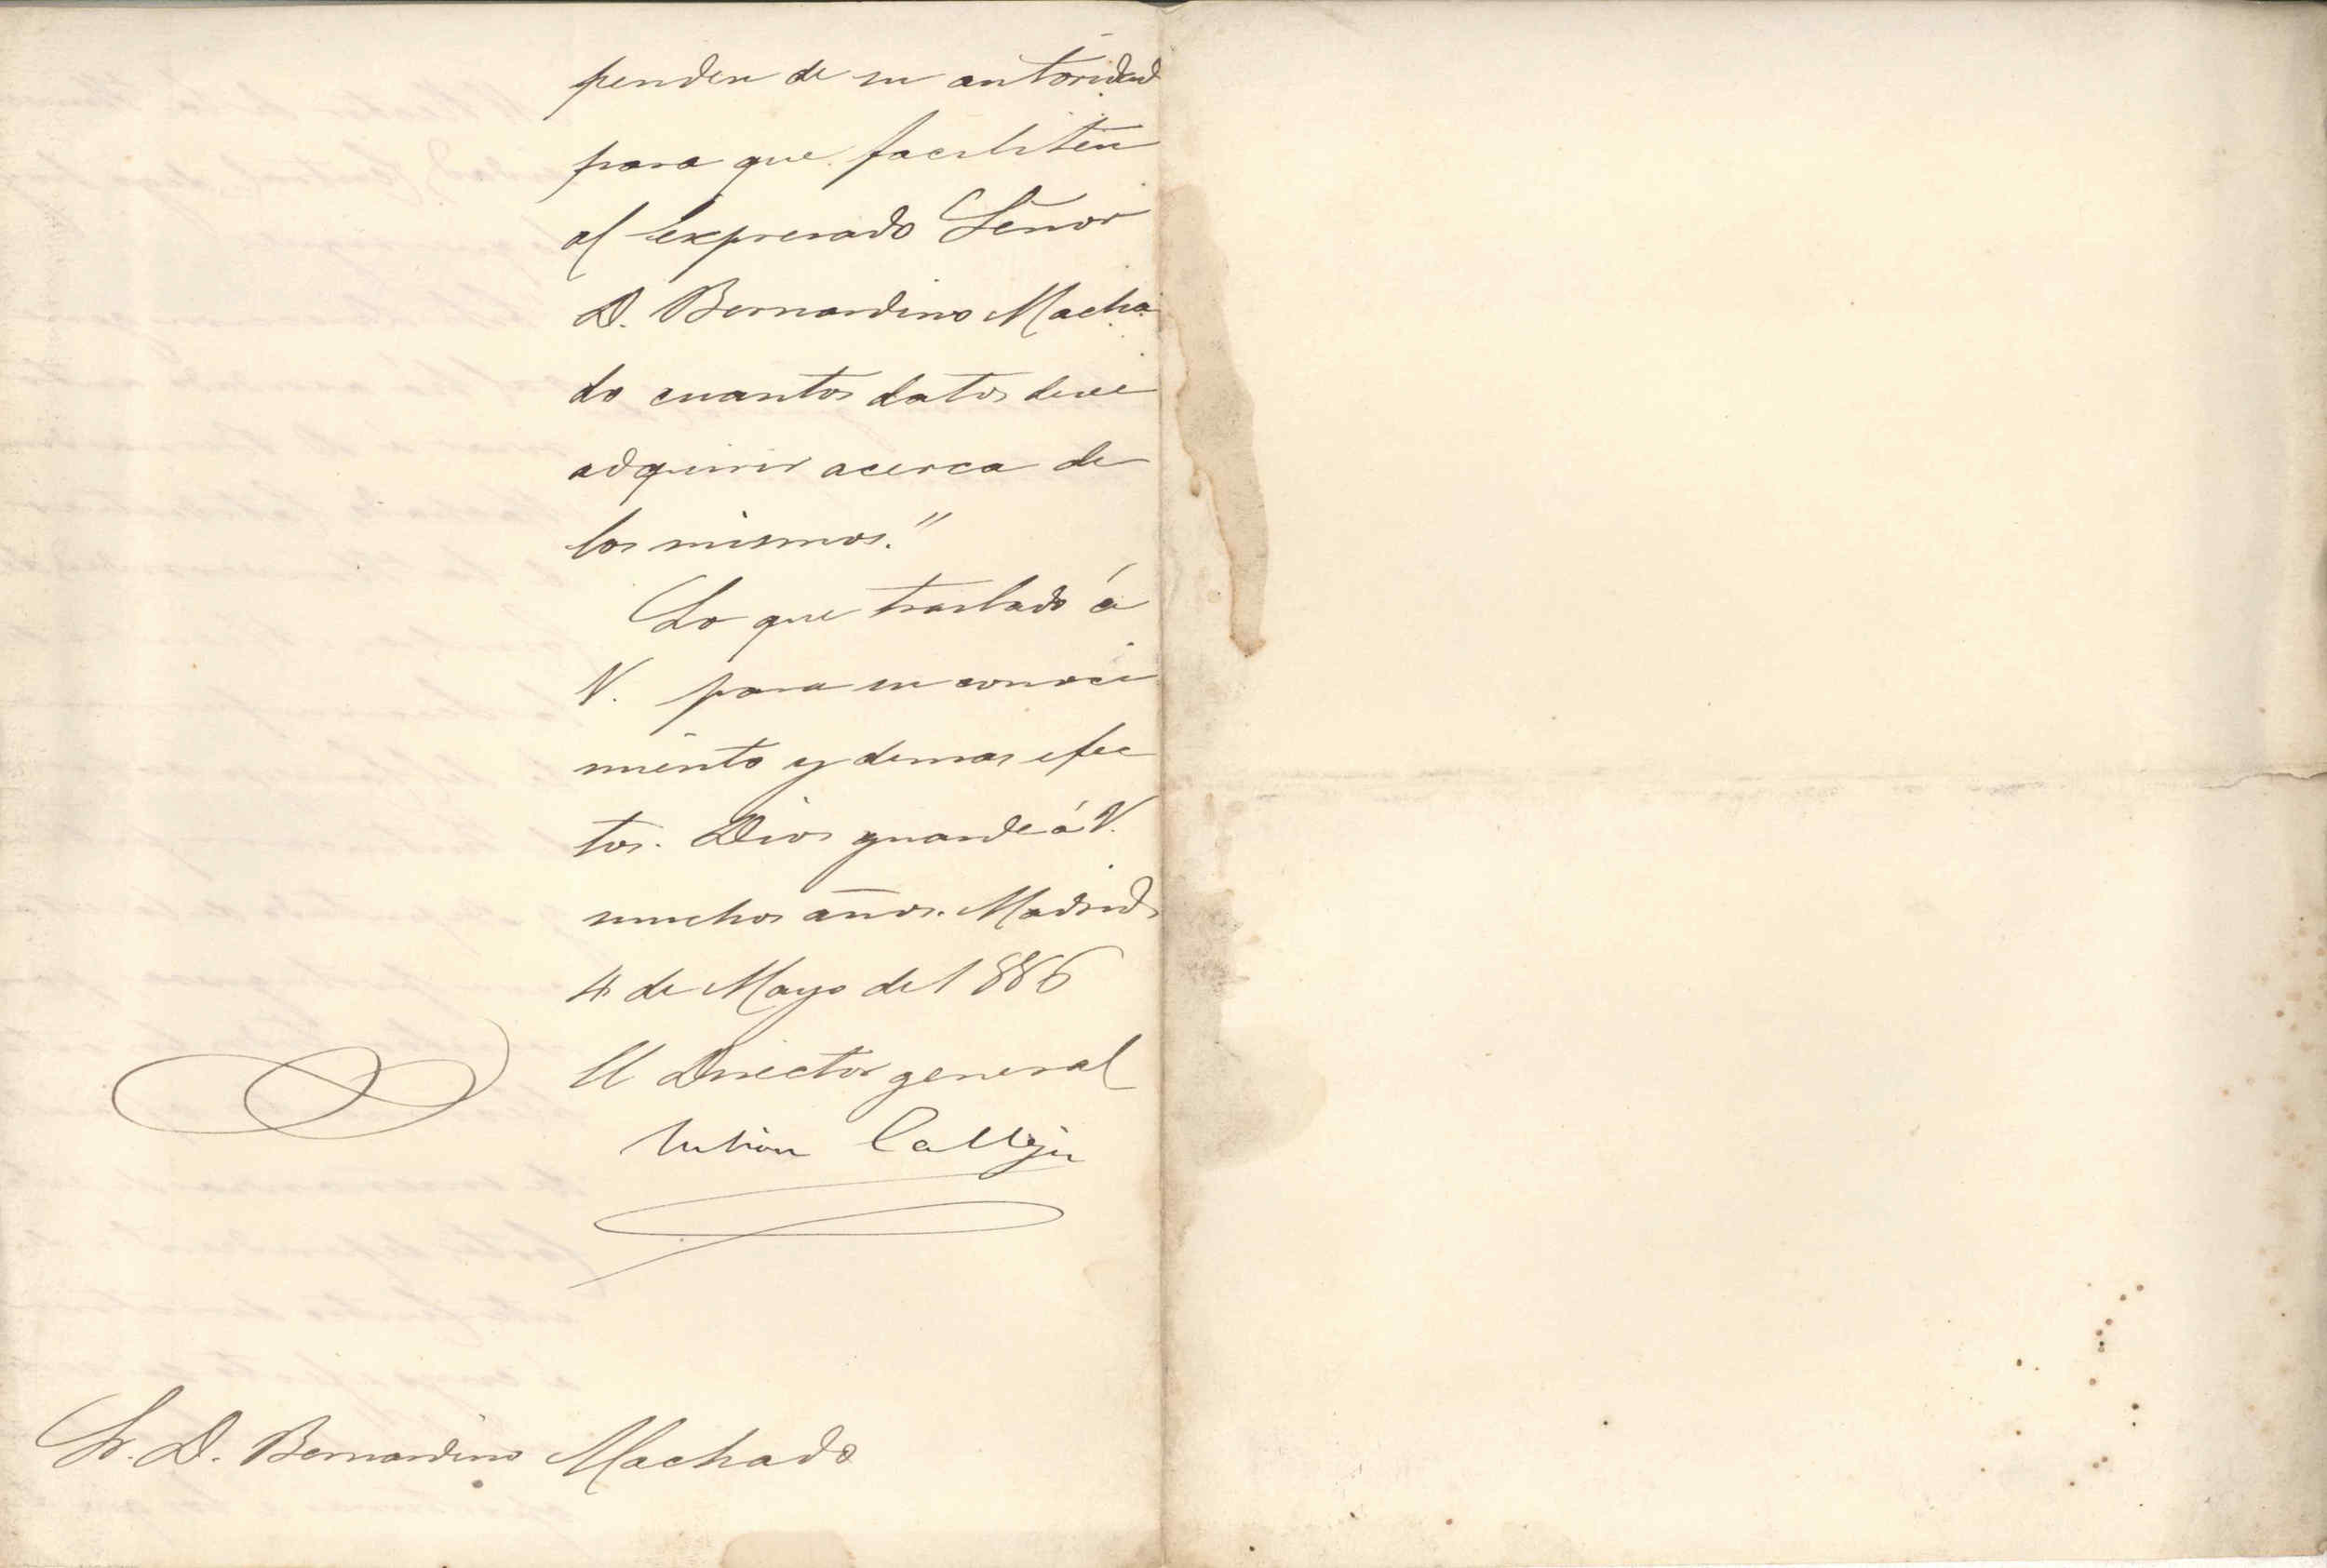 penden de su autoridad
para que faciliten
al expresado Señor
D. Bernardino Macha
do cuantos datos desee
adquirir acerca de
los mismos."
Lo que traslado á
V. para su conoci
miento y demas efec
tos. Dios guarde á V.
muchos años. Madrid
4 de Mayo de 1886
El Director general
Julian Calleja
Sr. D. Bernardino Machado